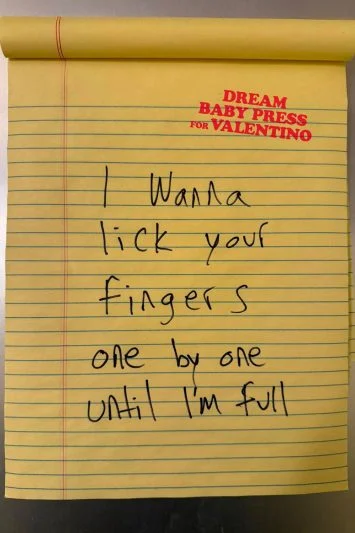 DREAM
BABY PRESS
FOR VALENTINO
I Wanna
lick your
fingers
one by one
until I'm full